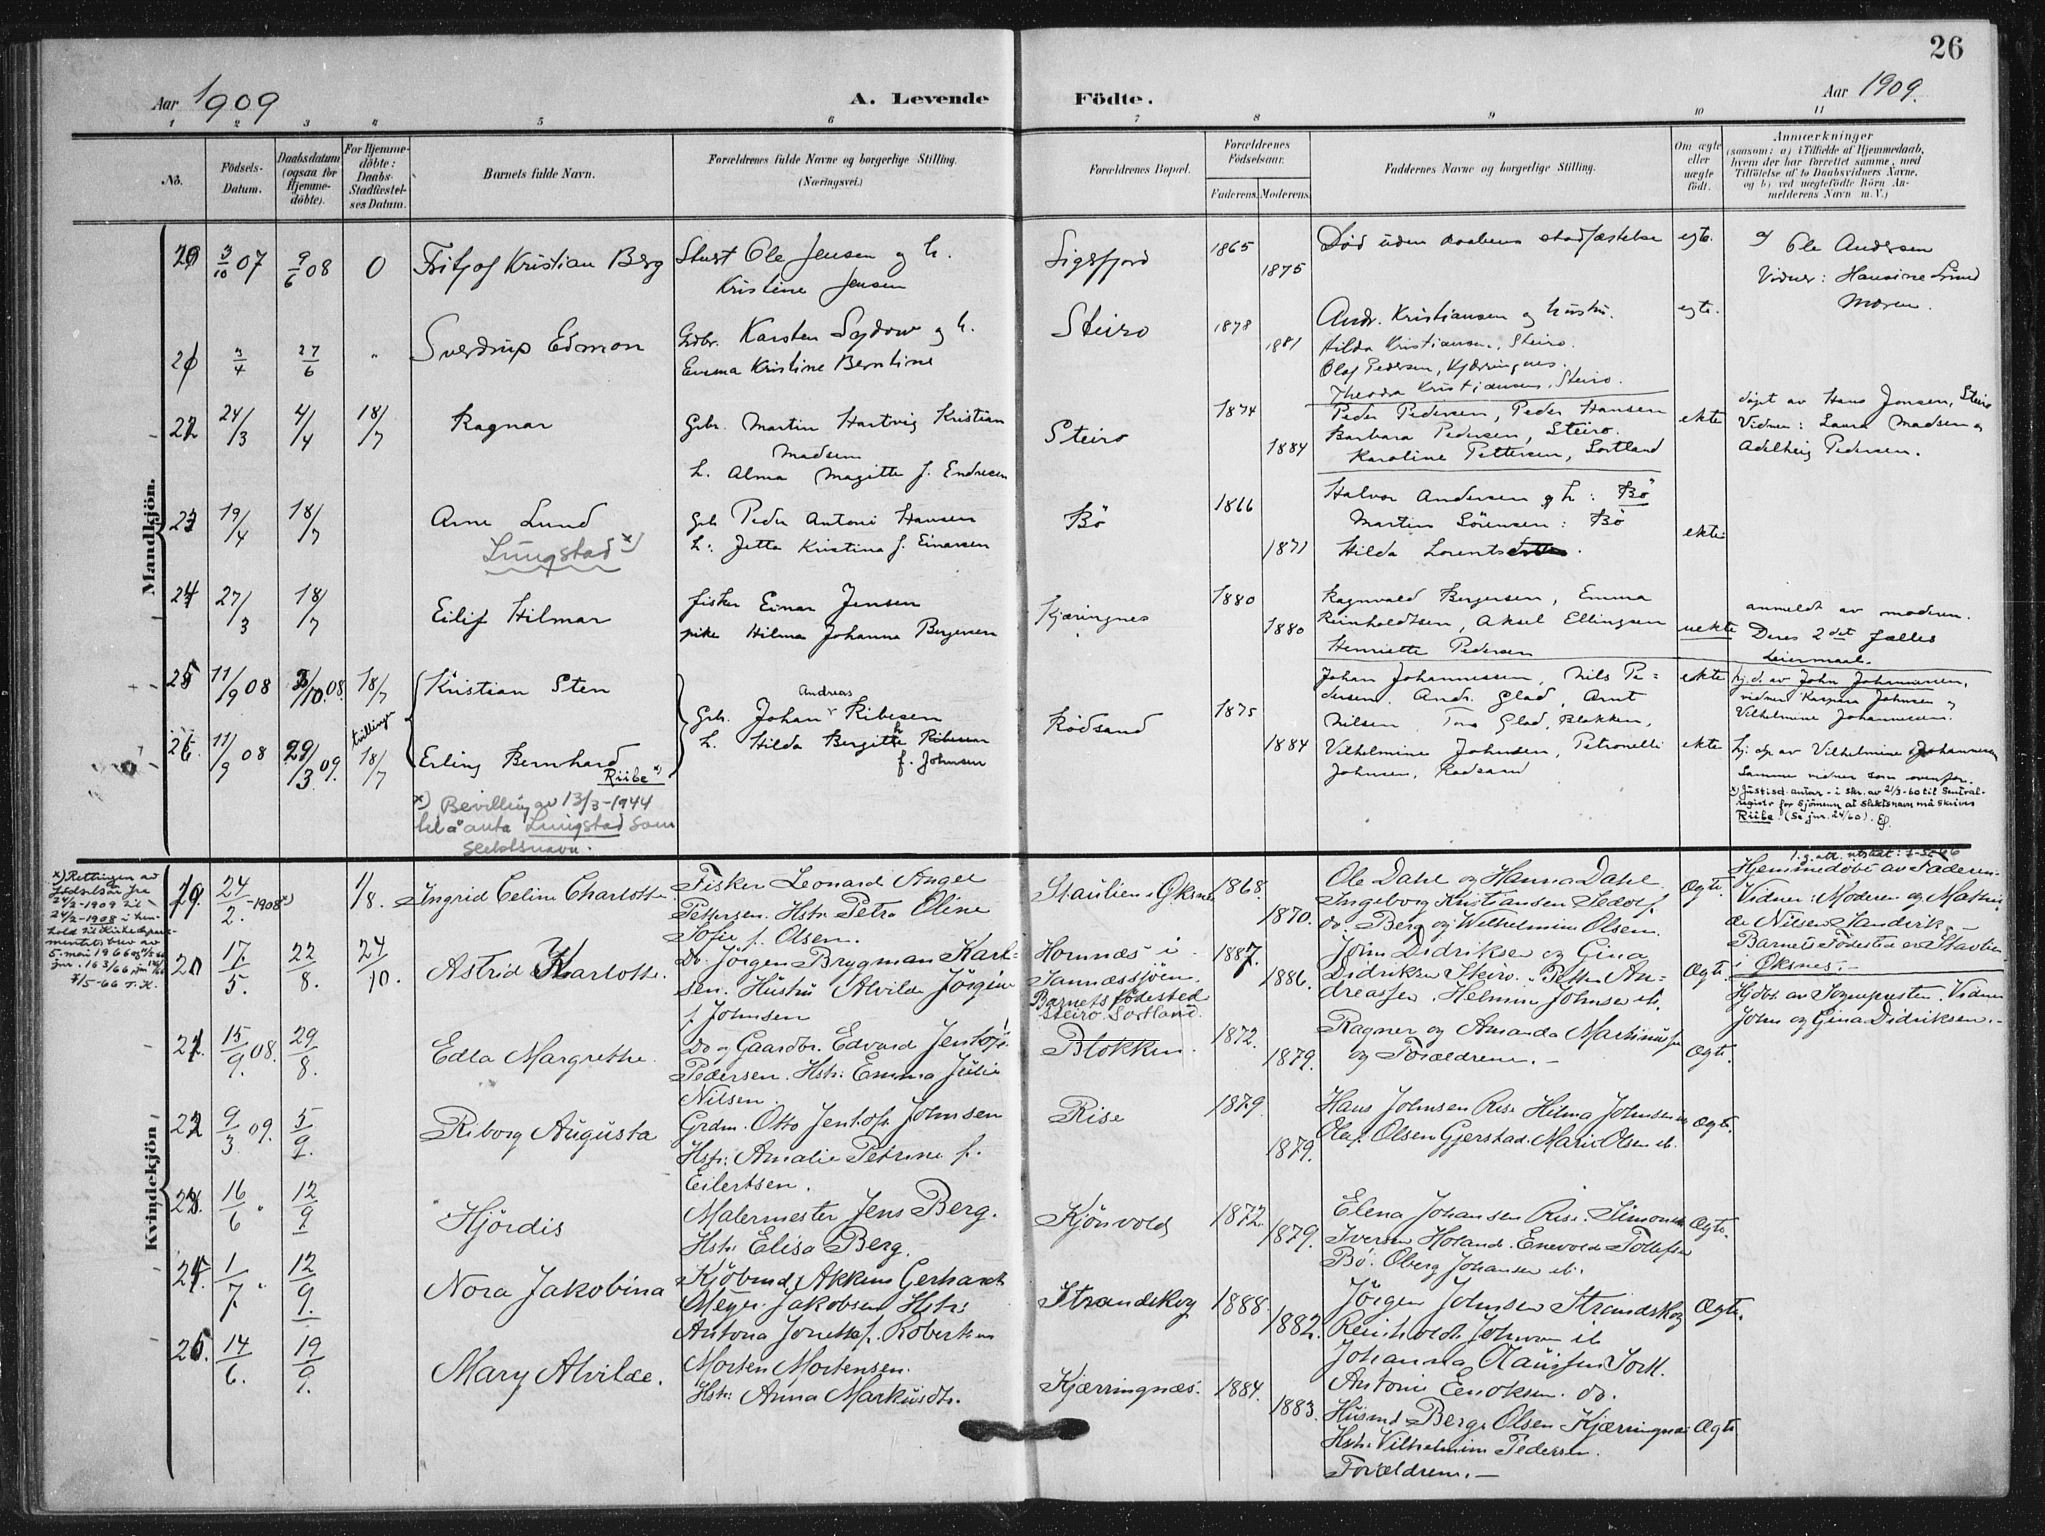 26
Aar 1909
A. Levende Födte.
Aar 1909.
1 2 3 4 5 6 7 8 9 10 11
No.
Födsels-
Datum.
Daabsdatum
(ogsaa for
Hjemme-
döbte).
For Hjemme-
döbte:
Daabs-
Stadfæstel-
ses Datum.
Barnets fulde Navn.
Forældrenes fulde Navne og borgerlige Stilling.
(Næringsvei.)
Forældrenes Bopæl.
Forældrenes
Födselsaar.
Faderens. Moderens.
Faddernes Navne og borgerlige Stilling.
Om ægte
eller
uægte
födt.
Anmærkninger
(saasom: a) i Tilfælde af Hjemmedaab,
hvem der har forrettet samme, med
Tilföielse af to Daabsvidners Navne,
og b) ved uægtefödte Börn An-
melderens Navn m.V.)
Mandkjön.
20 3/10 07 9/6 08 0 Fritjof Kristian Berg
Ole Jensen og h.
Kristine Jensen
Sigsfjord
1865
1875
Död uden daabens stadfæstelse
egte.
a) Ole Andersen
Vidner: Hansine Lund
Moren.
21 3/4 27/6 " Sverdrup Edmon
Gdbr. Karsten Sydow og h.
Emma Kristine Berntine
Steiro
1878
1881
Andr. Kristiansen og hustru.
Hilda Kristiansen, Steiro.
Olaf Pedersen, Kjærringnes.
Theodra Kristiansen, Steiro.
egte.
22 24/3 4/4 18/7 Ragnar
Gbr. Martin Hartvig Kristian
Madsen
h. Alma Magitte f. Endresen
Steiro
1874
1884
Peder Pedersen, Peder Hansen
Barbara Pedersen, Steiro.
Karoline Pettersen, Sortland
ekte
döpt av Hans Jensen, Steiro
Vidner: Laura Madsen og
Adelheig Pedersen.
23 19/4 18/7 Arne Lund
Lungstad x)
Gbr Peder Antoni Hansen
h: Jetta Kristina f. Einarsen
Bö
1866
1871
Halvor Andersen og h: Bö
Martin Sörensen: Bö
Hilda
ekte
24 27/3 18/7 Eilif Hilmar
fisker Einar Jensen
pike Hilma Johanna Bergersen
Kjæringnes
1880
1880
Ragnvald Bergersen, Emma
Reinholdtsen, Aksel Ellingsen
Henriette Pedersen
uekte
anmeldt av moderen.
Deres 2det fælles
Leiermaal.
25 11/9 08 3/10.08. 18/7 Kristian Sten
tvillinger
26. 11/9 08 29/3 09. 18/7 Erling Bernhard
Riibe x)
Andreas
Gbr. Johan Ribesen
h. Hilda Bergitte Ribesen
f. Johnsen
Rödsand
1875
1884
Johan Johannessen, Nils Pe=
dersen, Andr. Glad, Arnt
Nilsen Glad, Blokken,
Vilhelmine Johnsen, Petronelli
Johnsen, Rødsand
ekte
ekte
hj.d. av John Johannesen,
vidner Kaspara Johnsen og
Vilhelmine Johannessen.
hj. dp. av Vilhelmine Johannesen
Samme vidner som ovenfor.
x) Justisd. antar - i skr. av 21/3-60 til Sentral-
registr for sjömenn at slektsnavn må skrives
Riibe. (Se jnr. 24/60).
x) Bevilling av 13/3-1944
til å anta Lungstad som
slektsnavn.
Kvindekjön
x) Rettingen av
födselsår fra
24/2-1909 til
24/2-1908 i hen-
hold til Kirkedepar-
mentets brev av
5. mai 1966
jnr. 163/66
7/5-66
19. 24/2. -1908 x) 1/8. Ingrid Celine Charlotte.
Fisker Leonard Angel
Pettersen. Hstr. Petra Oline
Sofie f. Olsen.
Staulien i Øksnes
1868.
1870.
Ole Dahl og Hanna Dahl.
Ingeborg Kristiansen
do. Berg og Wilhelmine Olsen.
Ægte.
Hjemmedöbt av Faderen.
Vidner: Moderen og
Nilsen
Barnets Födested er Stavlien
i Øksnes.-
20 17./5. 22/8. 24/10. Astrid Karlotte.
Do. Jörgen Brygman Karl=
sen. Hustru Alvilde Jörgine
f. Johnsen
Hornnes i
Sannessjöen
Barnets födested
Steiro. Sortland.
1887.
1886.
John Didriksen og Gina
Didriksen Steiro. Petter An=
dreassen. Helmine Johnsen ib.
Ægte.
Hjdbt. av Sognepresten. Vidner
John og Gina Didriksen.-
21. 15/9. 08. 29/8. Edla Margrethe.
Do og Gaardbr. Edvard Jentoft
Pedersen. Hstr: Emma Julie
Nilsen.
Blokken.
1872.
1879.
Ragner og Amanda Martinussen
og Forældrene.-
Ægte.
22 9/3 09. 5/9. Riborg Augusta
Grdm. Otto Jentoft Johnsen
Hstr: Amalie Petrine f.
Eilertsen.
Rise
1879.
1879.
Hans Johnsen Rise Hilma Johnsen
Olaf Olsen Gjerstad. Marie Olsen ib.
Ægte.
23. 16/6 " 12/9 Hjördis
Malermester Jens Berg.
Hstr. Elisa Berg.
Kjönvold
1872.
1879.
Elena Johansen Rise. Simonie
Iversen Holand. Enevold Tollefsen
Bö. Oberg Johansen ib.
Ægte.
24. 1/7. " 12/9. Nora Jakobina
Gerhardt
Meyer Jakobsen Hstr:
Antona
Strandskog
1888.
1882.
Jörgen Johnsen Strandskog
Reinholdt ib
Johanna Claussen
Antonie Enoksen. do.
Ægte.
25. 14/6. 19/9. Mary Alvilde.
Morten Mortensen.
Hstr: Anna Markusdtr.
Kjærringnæs.
1884.
1883.
Husmd Berge Olsen Kjærringnæs
Hstr. Vilhelmine Pedersen.
Forældrene.-
Ægte